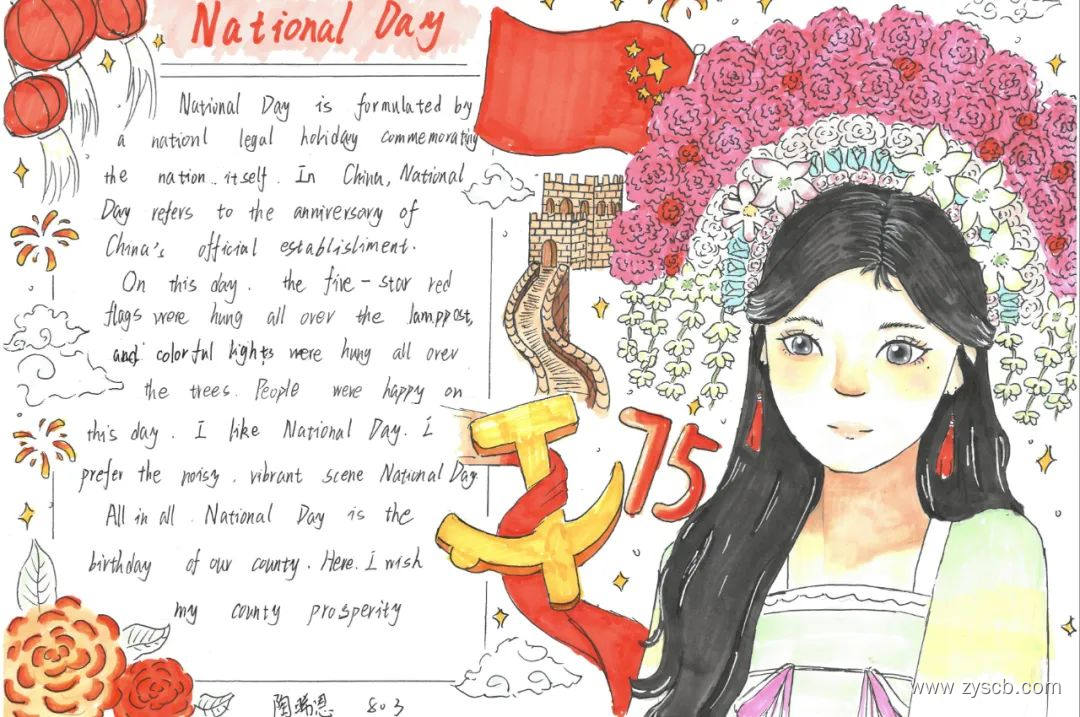 National Day
National Day is formulated by
a nationl legal holiday commemorating
the nation itself. In China, National
Day refers to the anniversary of
China's official establishment.
On this day. the five-star red
flags were hung all over the lamppost,
and colorful lights were hung all over
the trees. People were happy on
this day. I like National Day. I
prefer the noisy. vibrant scene National Day.
All in all. National Day is the
birthday of our county. Here. I wish
my county prosperity
75
陶瑞恩 803
www.zyscb.com